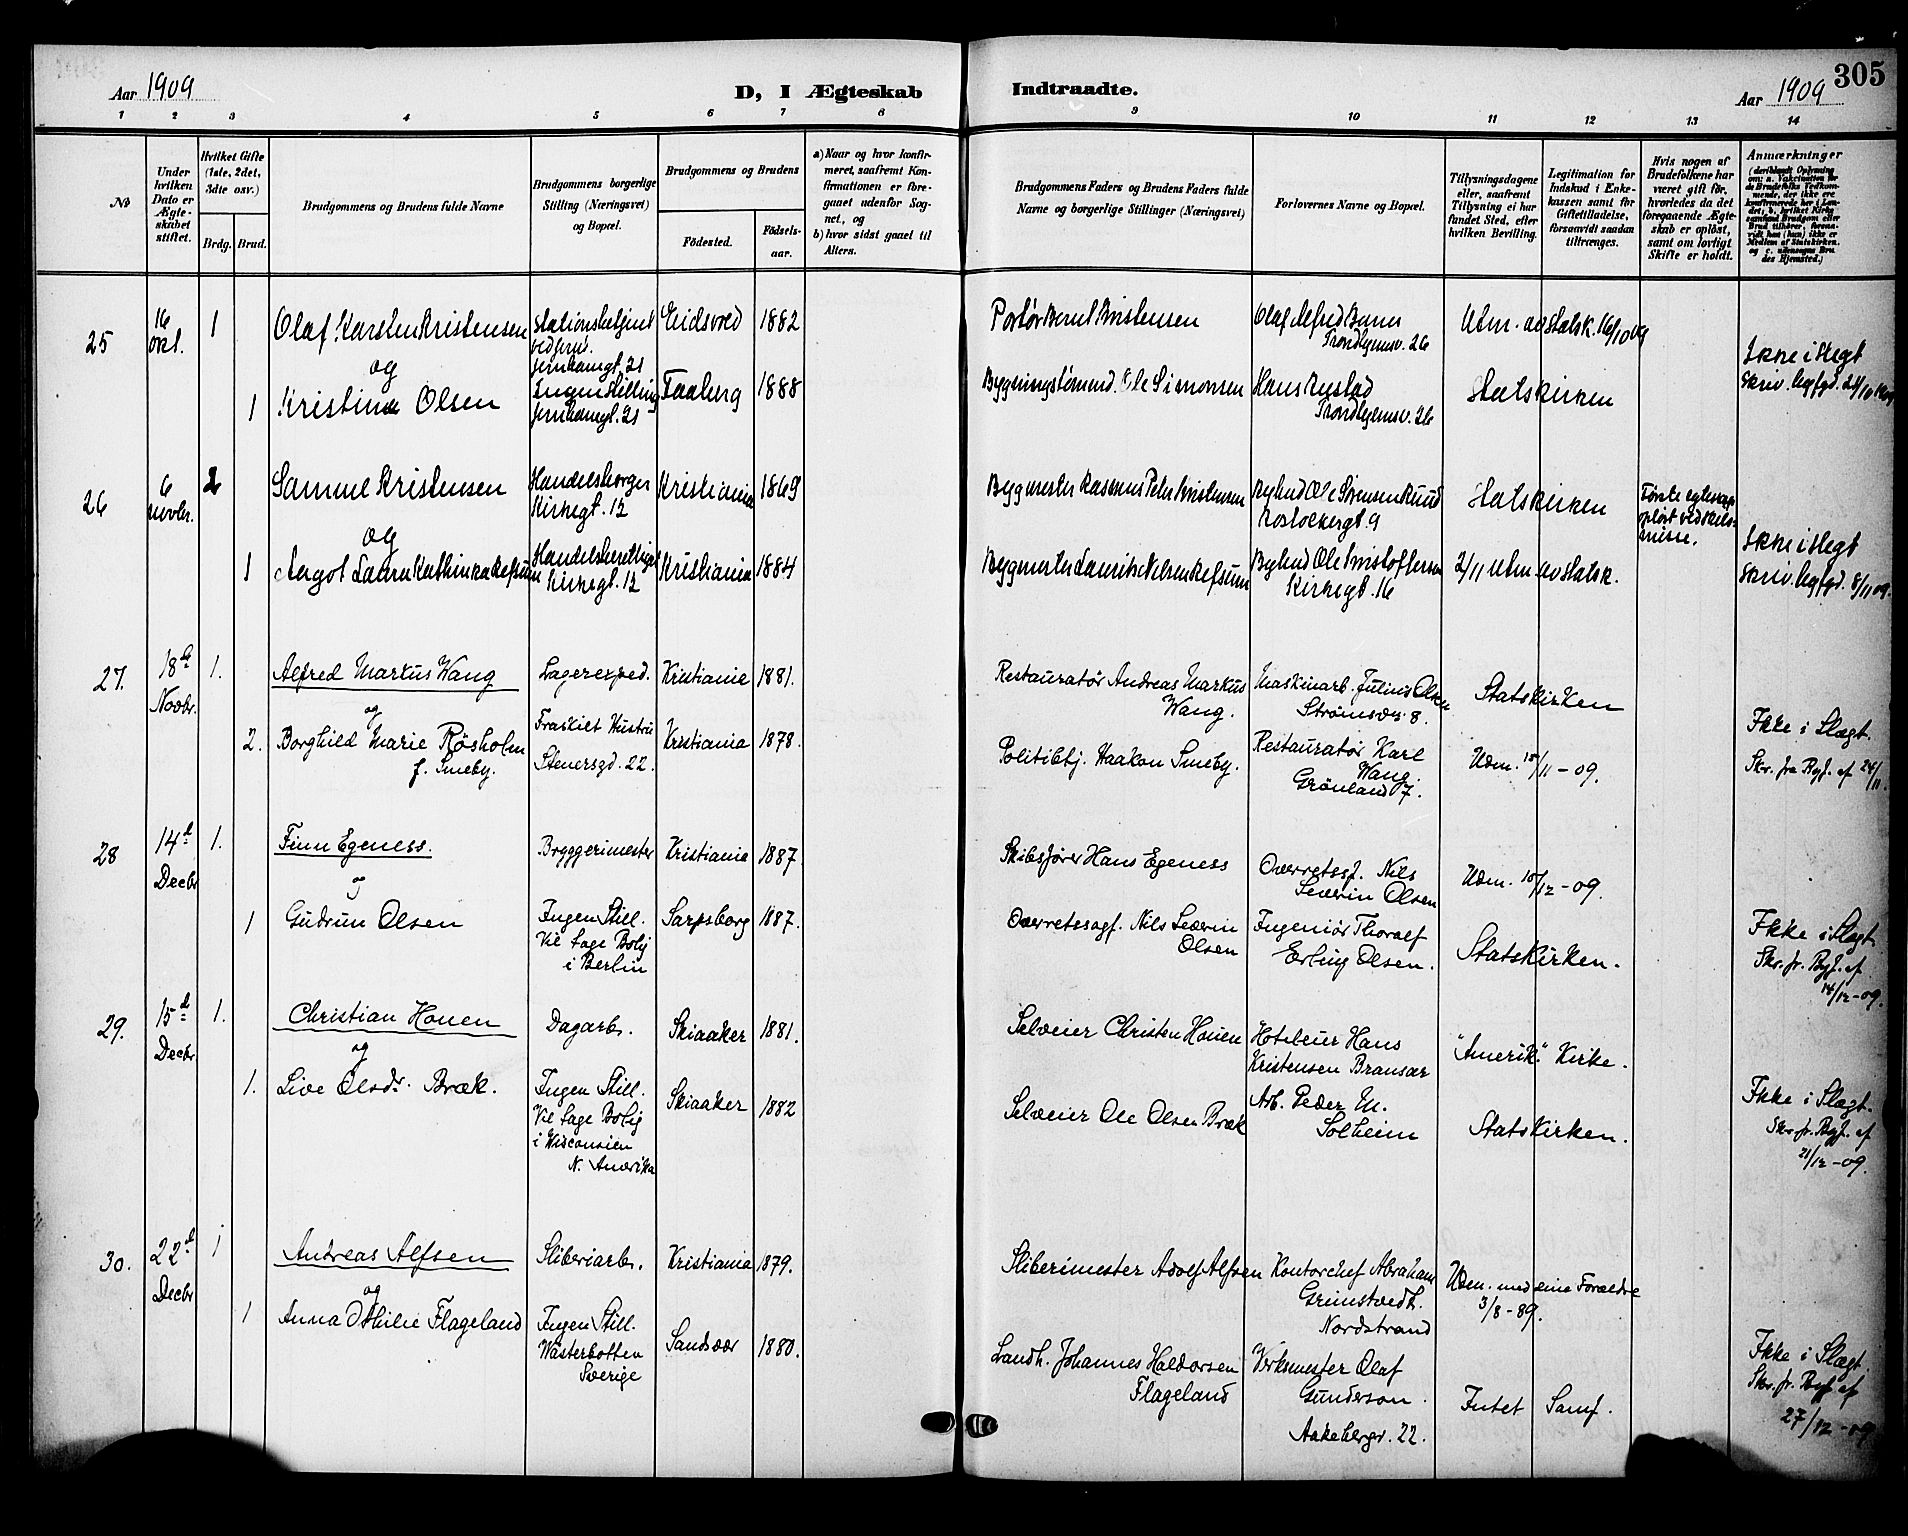 305
Aar 1909
D, I Ægteskab
Indtraadte.
Aar 1909
1 2 3 4 5 6 7 8 9 10 11 12 13 14
No
Under
hvilken
Dato er
Ægte-
skabet
stiftet.
Hvilket Gifte
(1ste, 2det,
3die osv.)
Brdg. Brud.
Brudgommens og Brudens fulde Navne
Brudgommens borgerlige
Stilling (Næringsvei)
og Bopæl.
Brudgommens og Brudens
Fødested.
Fødsels-
aar.
a) Naar og hvor konfir-
meret, saafremt Kon-
firmationen er fore-
gaaet udenfor Sog-
net, og
b) hvor sidst gaaet til
Alters.
Brudgommens Faders og Brudens Faders fulde
Navne og borgerlige Stillinger (Næringsvei)
Forlovernes Navne og Bopæl.
Tillysningsdagene
eller, saafremt
Tillysning ei har
fundet Sted, efter
hvilken Bevilling.
Legitimation for
Indskud i Enke-
kassen samt for
Giftetilladelse,
forsaavidt saadan
tiltrænges.
Hvis nogen af
Brudefolkene har
været gift før,
hvorledes da det
foregaaende Ægte-
skab er opløst,
samt om lovligt
Skifte er holdt.
Anmærkninger
25
16
okt.
1
Olaf Karsten Kristensen
Stationsbetjent
ved jernb.
Jernbanegt. 21
Eidsvold
1882
Portør Bernt Kristensen
Trondhjemsv. 26
Utm. av Statsk. 16/10 09
Ikke i slegt
Skriv. 
og
1
Kristine Olsen
Ingen stilling
Jernbanegt. 21
Faaberg
1888
Ole Simonsen
Hans Rustad
Trondhjemsv. 26
Statskirken
26
6
novbr.
2
Samuel Kristensen
Handelsborger
Kirkegt. 12
Kristiania
1869
Bygmester Rasmus Peter Kristensen
Ole Sørensen Ruud
Rostockergt. 9
Statskirken
Første egteskap
opløst ved skils-
misse.
Ikke i slegt
og
1
Aagot Laura Kathinka Refsum
Kirkegt. 12
Kristiania
1884
Bygmester Laurits Nilsen Refsum
Ole Kristoffersen
Kirkegt. 16
2/11 utm. av Statsk.
8/11 09.
27.
18d
Novbr.
1.
Alfred Markus Wang
Lagerexped.
Kristiania
1881.
Restauratør Andreas Markus
Wang.
Maskinarb. Julius Olsen
Strømsvei 8.
Statskirken
og
2.
Borghild Marie Røsholm
f. Smeby.
Fraskilt Hustru
Stenersgd. 22.
Kristiania
1878.
Politibtj. Haakon Smeby.
Restauratør Karl
Wang.
Grønland 7.
Udm. 15/11 - 09.
Ikke i Slægt.
Skr. fra Bygf. af 24/11
28
14d
Decbr
1.
Finn Egeness.
Bryggerimester
Kristiania
1887.
Skibsfører Hans Egeness
Overretssf. Nils
Severin Olsen
Udm. 10/12 - 09.
og
1
Gudrun Olsen
Ingen Still.
Vil tage Bolig
i Berlin
Sarpsborg
1887.
Overretssagf. Nils Severin
Olsen
Ingeniør Thoralf
Erling Olsen.
Statskirken.
Ikke i Slægt
Skr. fr. Bygf. af
14/12 - 09.
29.
15d
Decbr
1.
Christian Houen
Dagarb.
Skiaaker
1881.
Selveier Christen Houen
Hoteleier Hans
Kristensen Bransar
"Amerik." Kirke.
og
1.
Live Olsdr. Bræk.
Ingen Still.
Vil tage Bolig
i Wisconsien
N. Amerika
Skiaaker
1882
Selveier Ole Olsen Bræk
Arb. Peder M.
Solheim
Statskirken.
Ikke i Slægt.
Skr. fr. Bygf. af
21/12 - 09.
30.
22d
Decbr
1
Andreas Alfsen
Sliberiarb.
Kristiania
1879.
Sliberimester Adolf Alfsen
Kontorchef Abraham
Grimstvedt.
Nordstrand
Udm. med sine Forældre
3/8 - 89.
og
1
Anna Othilie Flageland
Ingen Still.
Wasterbotten
Sverige
Sandsvær
1880.
Landh. Johannes Haldorsen
Flageland
Verksmester Olaf
Gunderson.
Aakebergv. 22.
Intet Samf.
Ikke i Slægt.
Skr. fr. Bygf. af
27/12 - 09